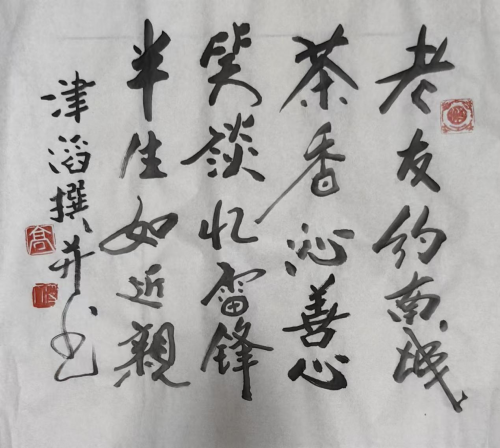 老友约南城
茶香沁善心
笑谈忆雷锋
半生如近親
津滔撰并书